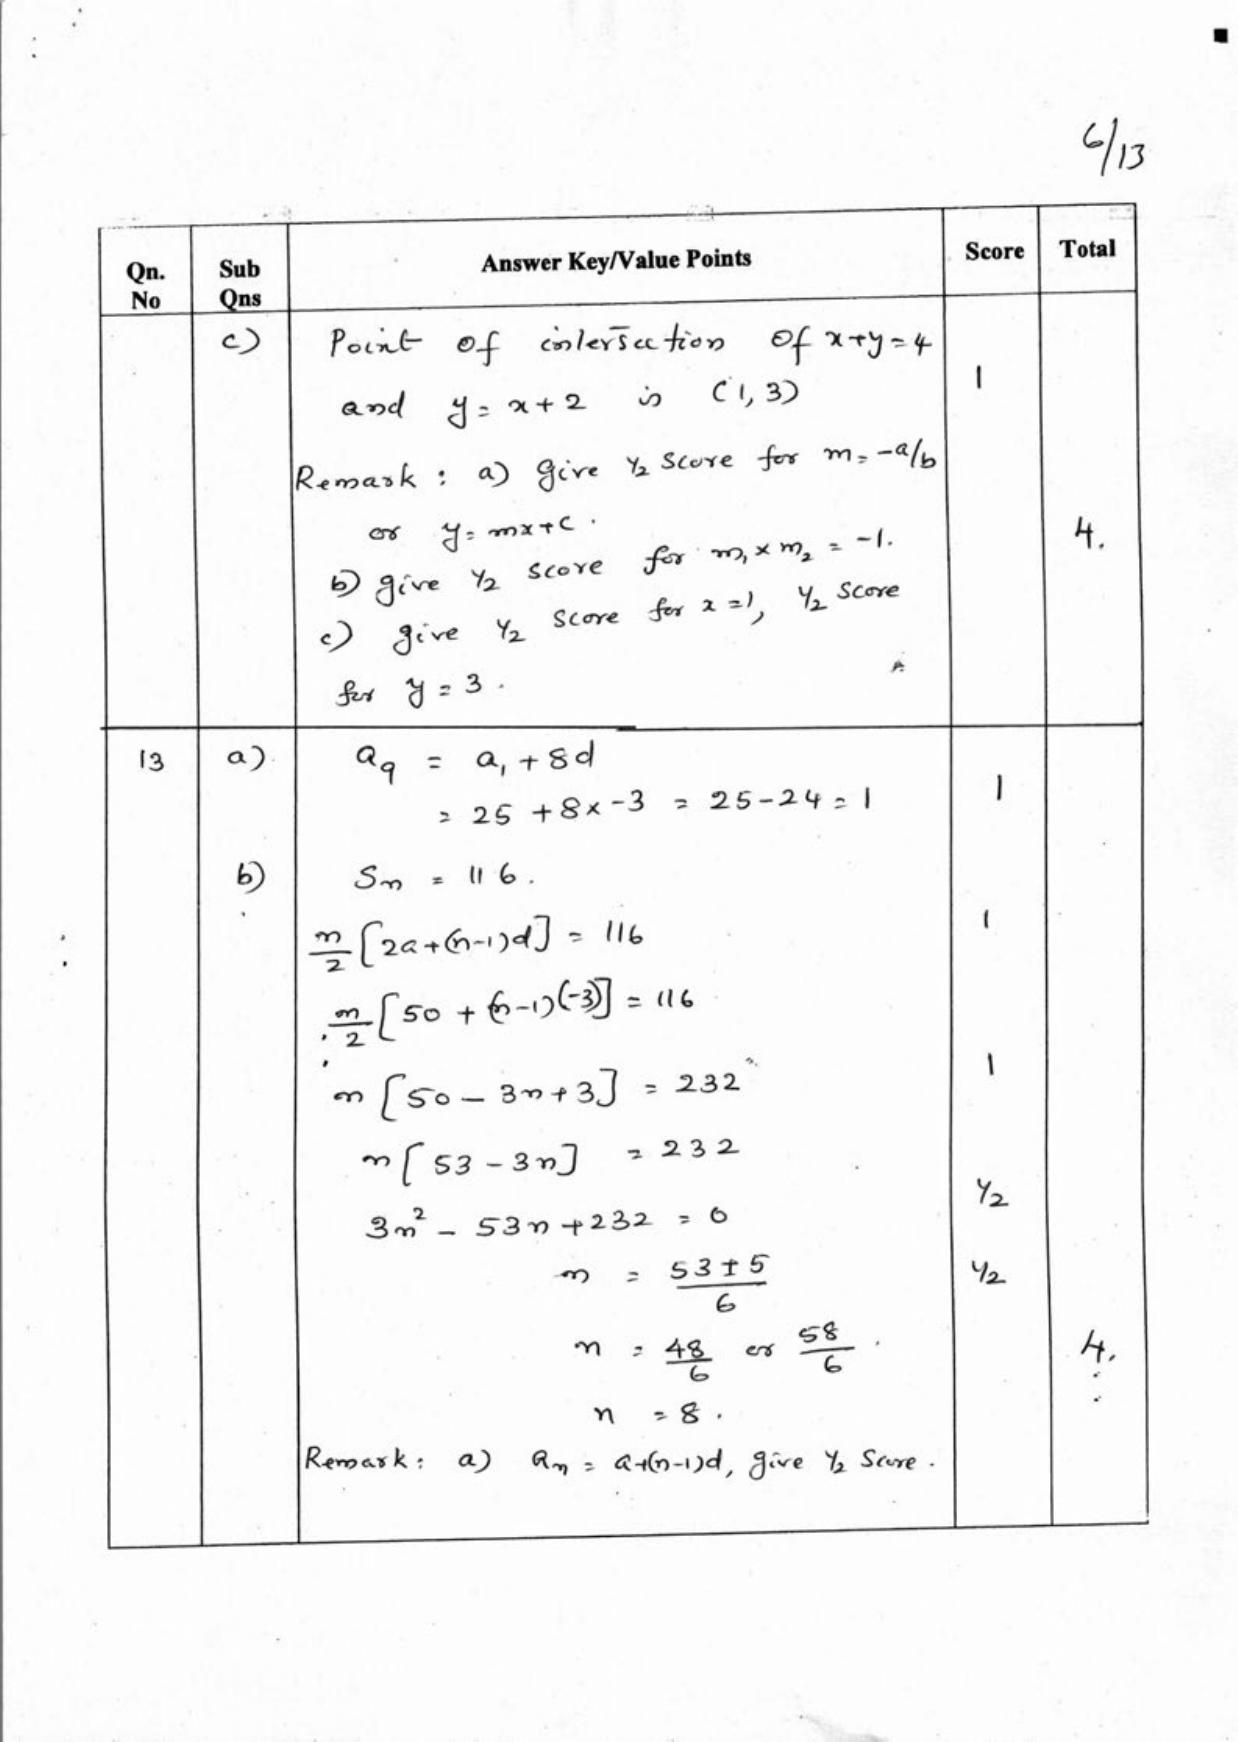 6/13
Qn. No Sub Qns Answer Key/Value Points Score Total
c) Point of intersection of x+y=4
and y = x+2 is (1, 3) 1
Remark : a) give ½ score for m = -a/b
or y = mx+c .
b) give ½ score for m₁ × m₂ = -1. 4.
c) give ½ score for x=1, ½ score
for y = 3 .
13 a) a₉ = a₁ + 8d
= 25 + 8x-3 = 25-24 = 1 1
b) Sn = 116 .
n/2 [2a+(n-1)d] = 116 1
n/2 [50 + (n-1)(-3)] = 116
n [50 - 3n+3] = 232 1
n [53 - 3n] = 232
3n² - 53n + 232 = 0 ½
n = 53±5/6 ½
n = 48/6 or 58/6 . 4.
n = 8 .
Remark : a) an = a+(n-1)d, give ½ Score .